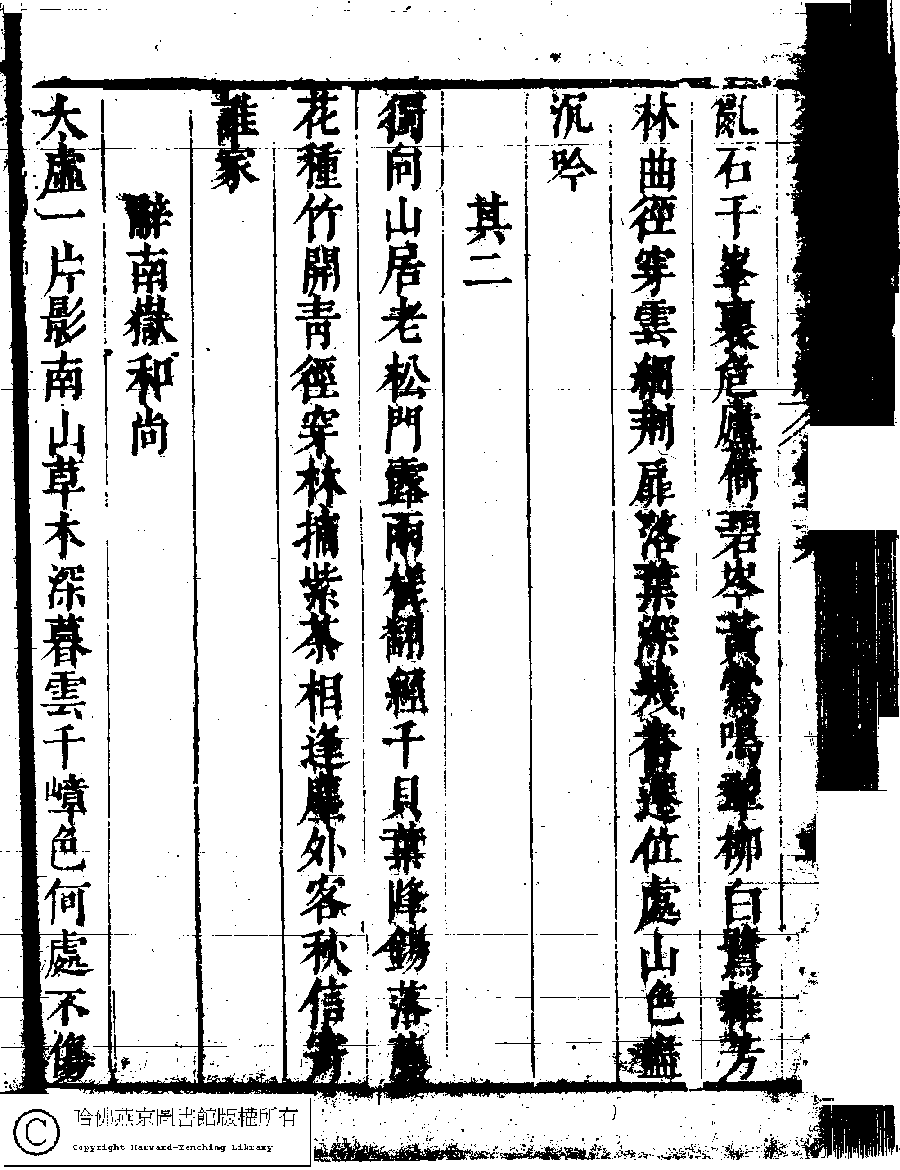 亂石千峯裏危廬倚碧岑黃鶯鳴翠柳白鷺雜芳
林曲徑穿雲細荆扉落葉深幾番遷位處山色盡
沉吟
其二
獨向山居老松門露兩槎翻經千貝葉降錫落藤
花種竹開青徑穿林摘紫茶相逢塵外客秋信寄
誰家
辭南嶽和尚
大虛一片影南山草木深暮雲千嶂色何處不傷
哈佛燕京圖書館版權所有
Copyright Harvard-Yenching Library